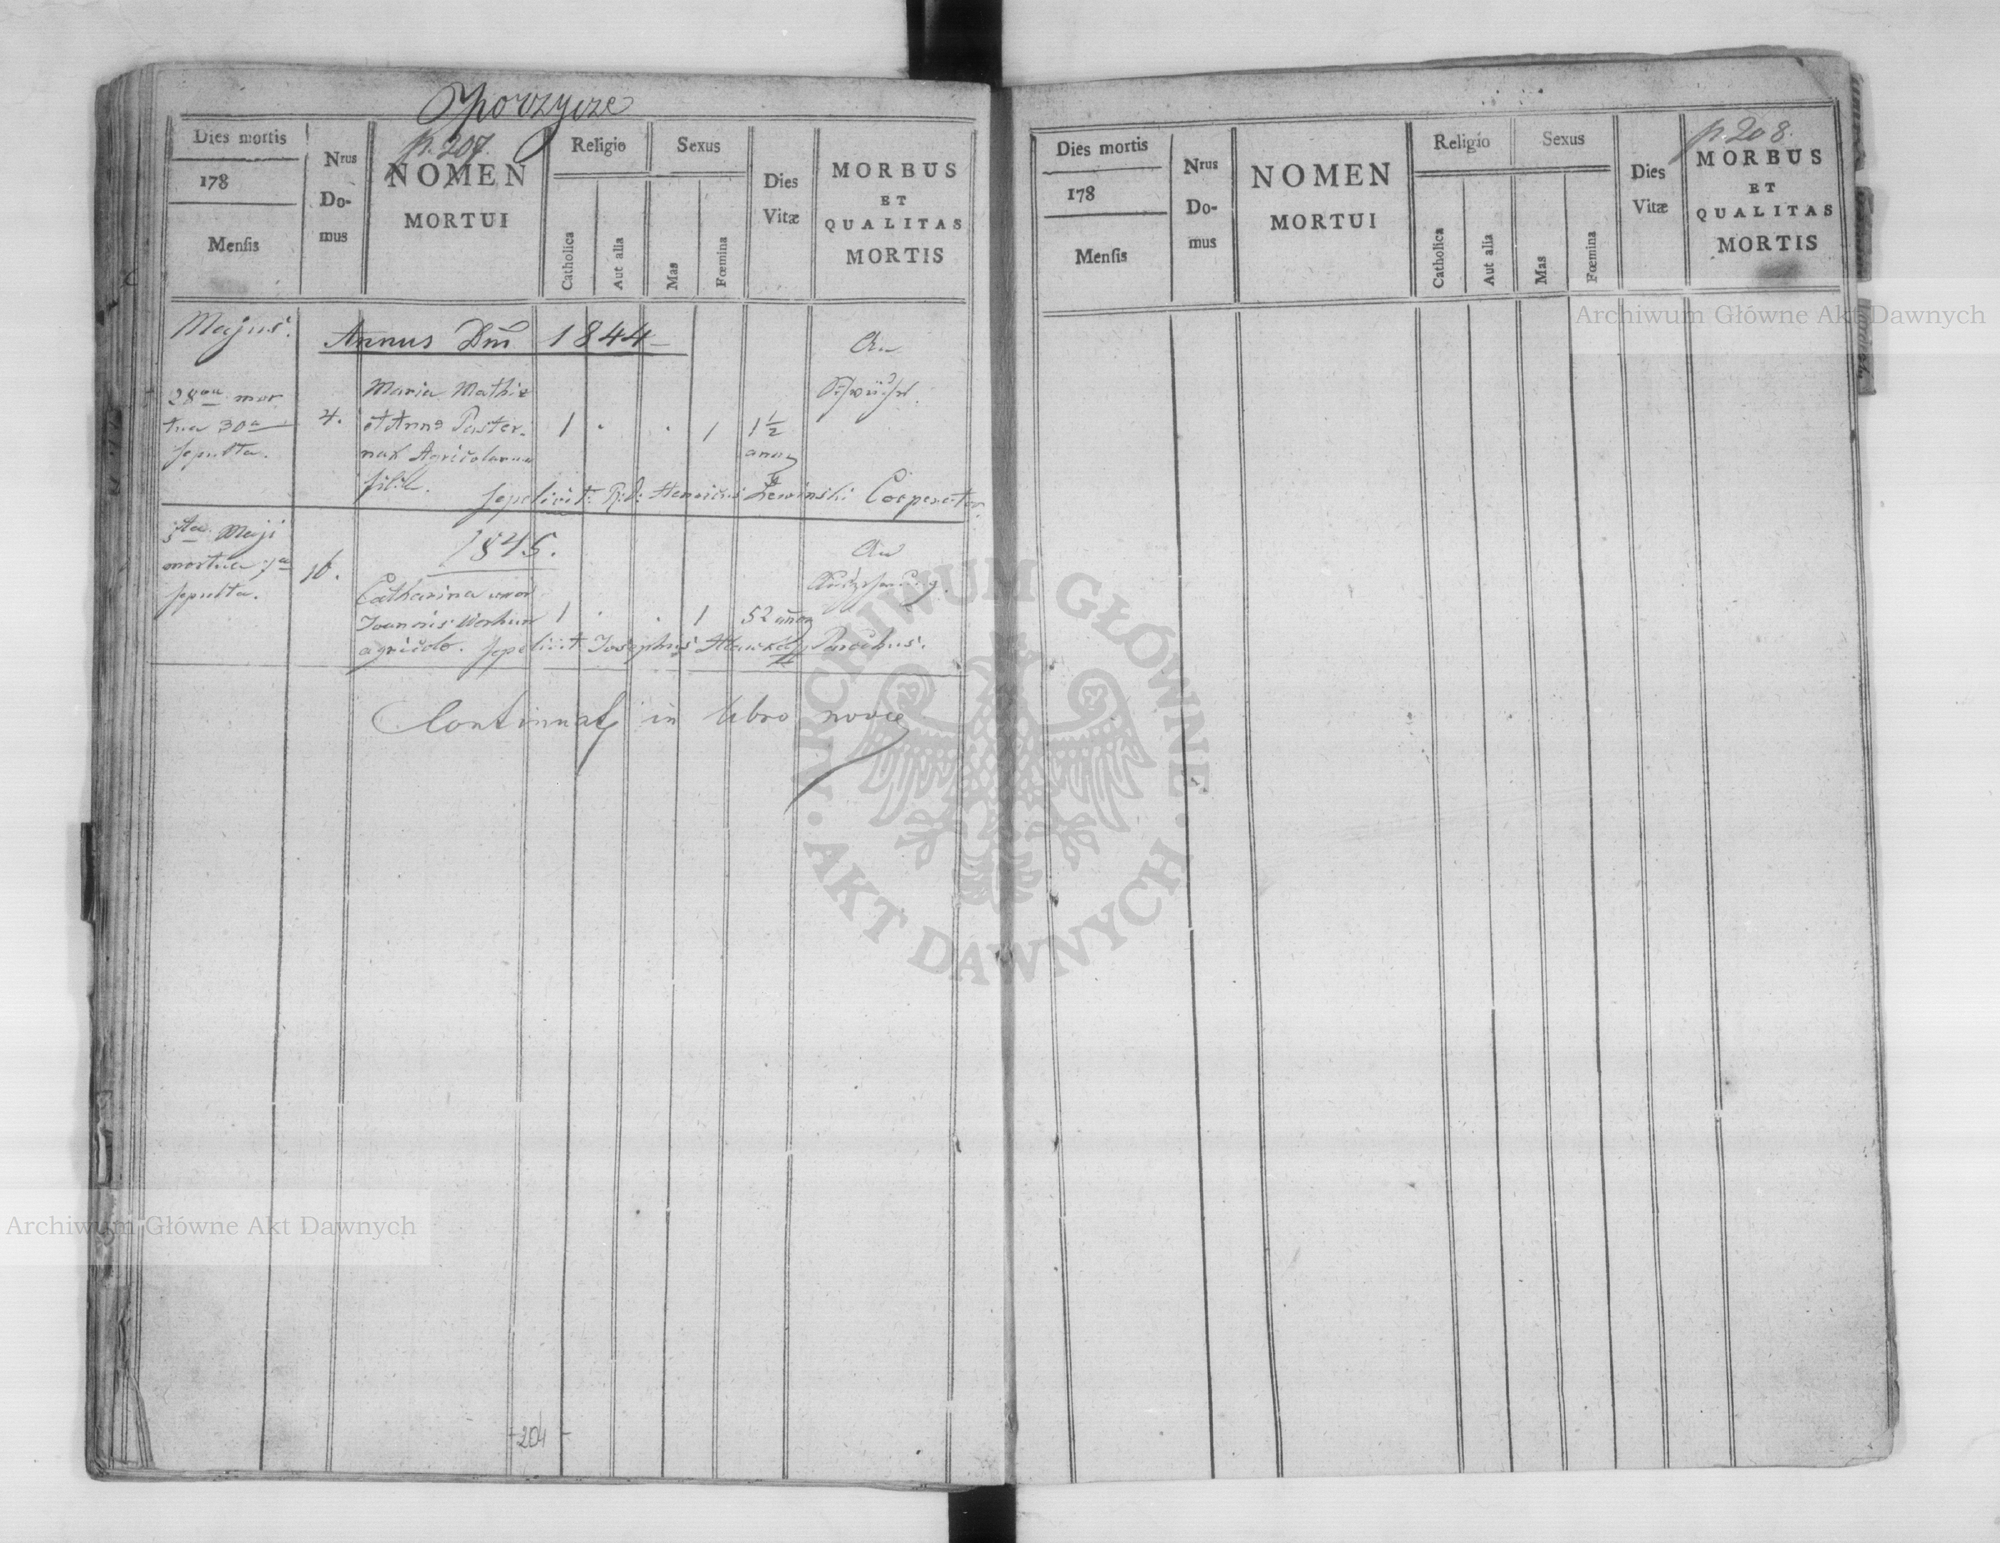 Porzycze
p. 207.
Dies mortis
178
Mensis
Nrus
Do-
mus
NOMEN
MORTUI
Religio
Catholica
Aut alia
Sexus
Mas
Fœmina
Dies
Vitæ
MORBUS
ET
QUALITAS
MORTIS
Majus.
Annus Dni 1844
An
28va mor
tua 30a
sepulta.
4.
Maria Mathiæ
et Anna Paster-
nak Agricolarum
filia.
1 . . 1
1 1/2
anno
sepelivit: R.D: Henricus Lewinski Cooperator.
5ta Maji
mortua 7a
sepulta.
16.
1845.
Catharina uxor
Joannis Worhun
agricolæ.
1 . . 1
52 annor
An
Auszehrung.
sepelivit Josephus Parochus.
Continuat in libro novo
204
p. 208.
Dies mortis
178
Mensis
Nrus
Do-
mus
NOMEN
MORTUI
Religio
Catholica
Aut alia
Sexus
Mas
Fœmina
Dies
Vitæ
MORBUS
ET
QUALITAS
MORTIS
Archiwum Główne Akt Dawnych
ARCHIWUM GŁÓWNE
AKT DAWNYCH
Archiwum Główne Akt Dawnych